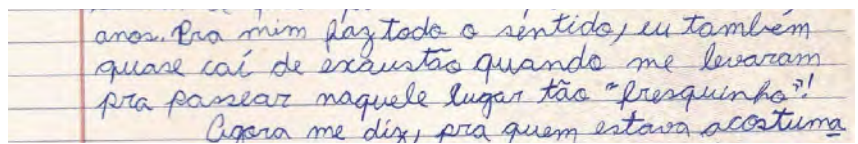 anos. Pra mim faz todo o sentido, eu também
quase caí de exaustão quando me levaram
pra passear naquele lugar tão "fresquinho"!
Agora me diz, pra quem estava acostuma